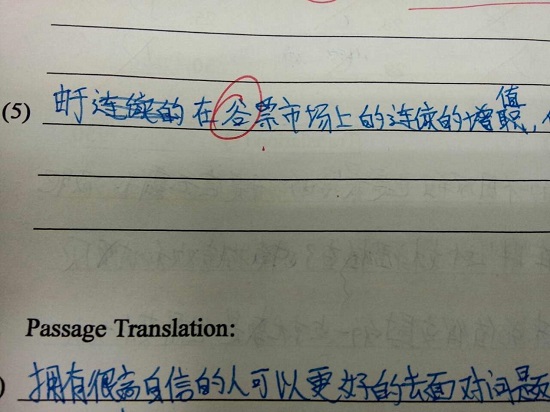 值
(5) 由于连续的在谷票市场上的连续的增职,
Passage Translation:
) 拥有很高自信的人可以更好的去面对问题